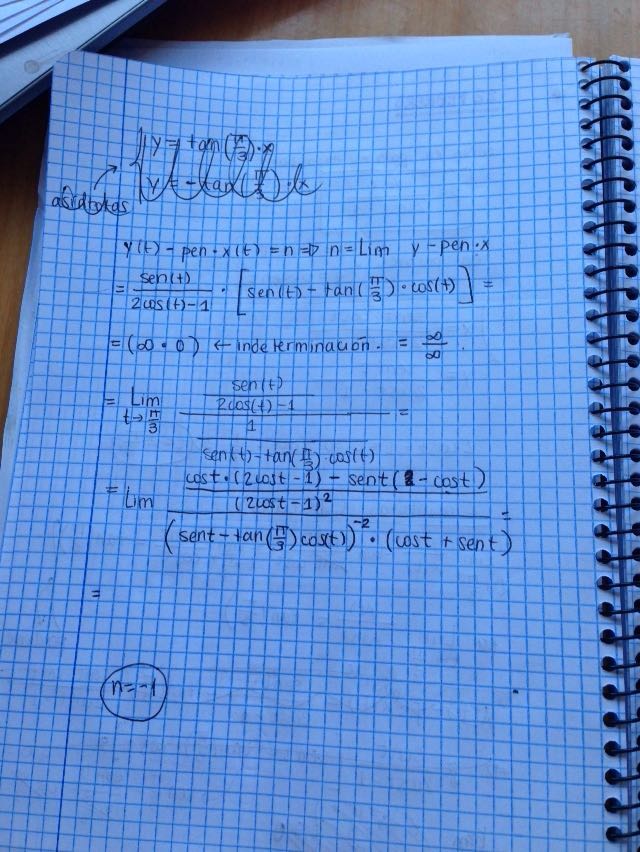 y = tan(π/3)·x
y = -tan(π/3)·x
asíntotas
y(t) - pen·x(t) = n => n = Lim y - pen·x
= sen(t)/(2cos(t)-1) · [sen(t) - tan(π/3)·cos(t)] =
= (∞·0) ← indeterminación. = ∞/∞.
= Lim t→π/3 (sen(t)/(2cos(t)-1))/(1/(sen(t)-tan(π/3)·cos(t))) =
= Lim ((cost·(2cost-1) - sent(2-cost))/(2cost-1)²)/((sent-tan(π/3)cos(t))⁻²·(cost+sent)) =
=
n=-1